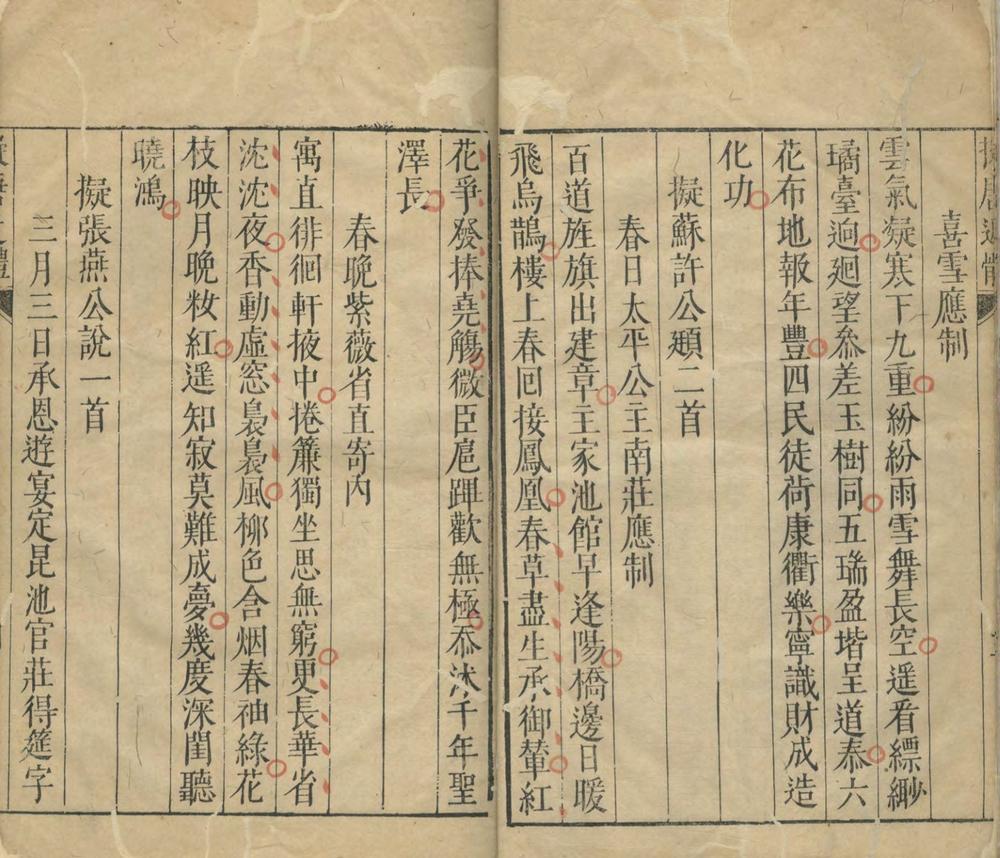 喜雪應制
雲氣凝寒下九重紛紛雨雪舞長空遥看縹緲
璚臺逈廻望叅差玉樹同五瑞盈堦呈道泰六
花布地報年豐四民徒荷康衢樂寧識財成造
化功
擬蘇許公頲二首
春日太平公主南莊應制
百道旌旗出建章主家池館早逢陽橋邊日暖
飛烏鵲樓上春回接鳳凰春草盡生承御輦紅
花爭發捧堯觴微臣扈蹕歡無極忝沐千年聖
澤長
春晚紫薇省直寄內
寓直徘徊軒掖中捲簾獨坐思無窮更長華省
沈沈夜香動虛窓裊裊風柳色含烟春袖綠花
枝映月晚妝紅遥知寂莫難成夢幾度深閨聽
曉鴻
擬張燕公說一首
三月三日承恩遊宴定昆池官莊得筵字